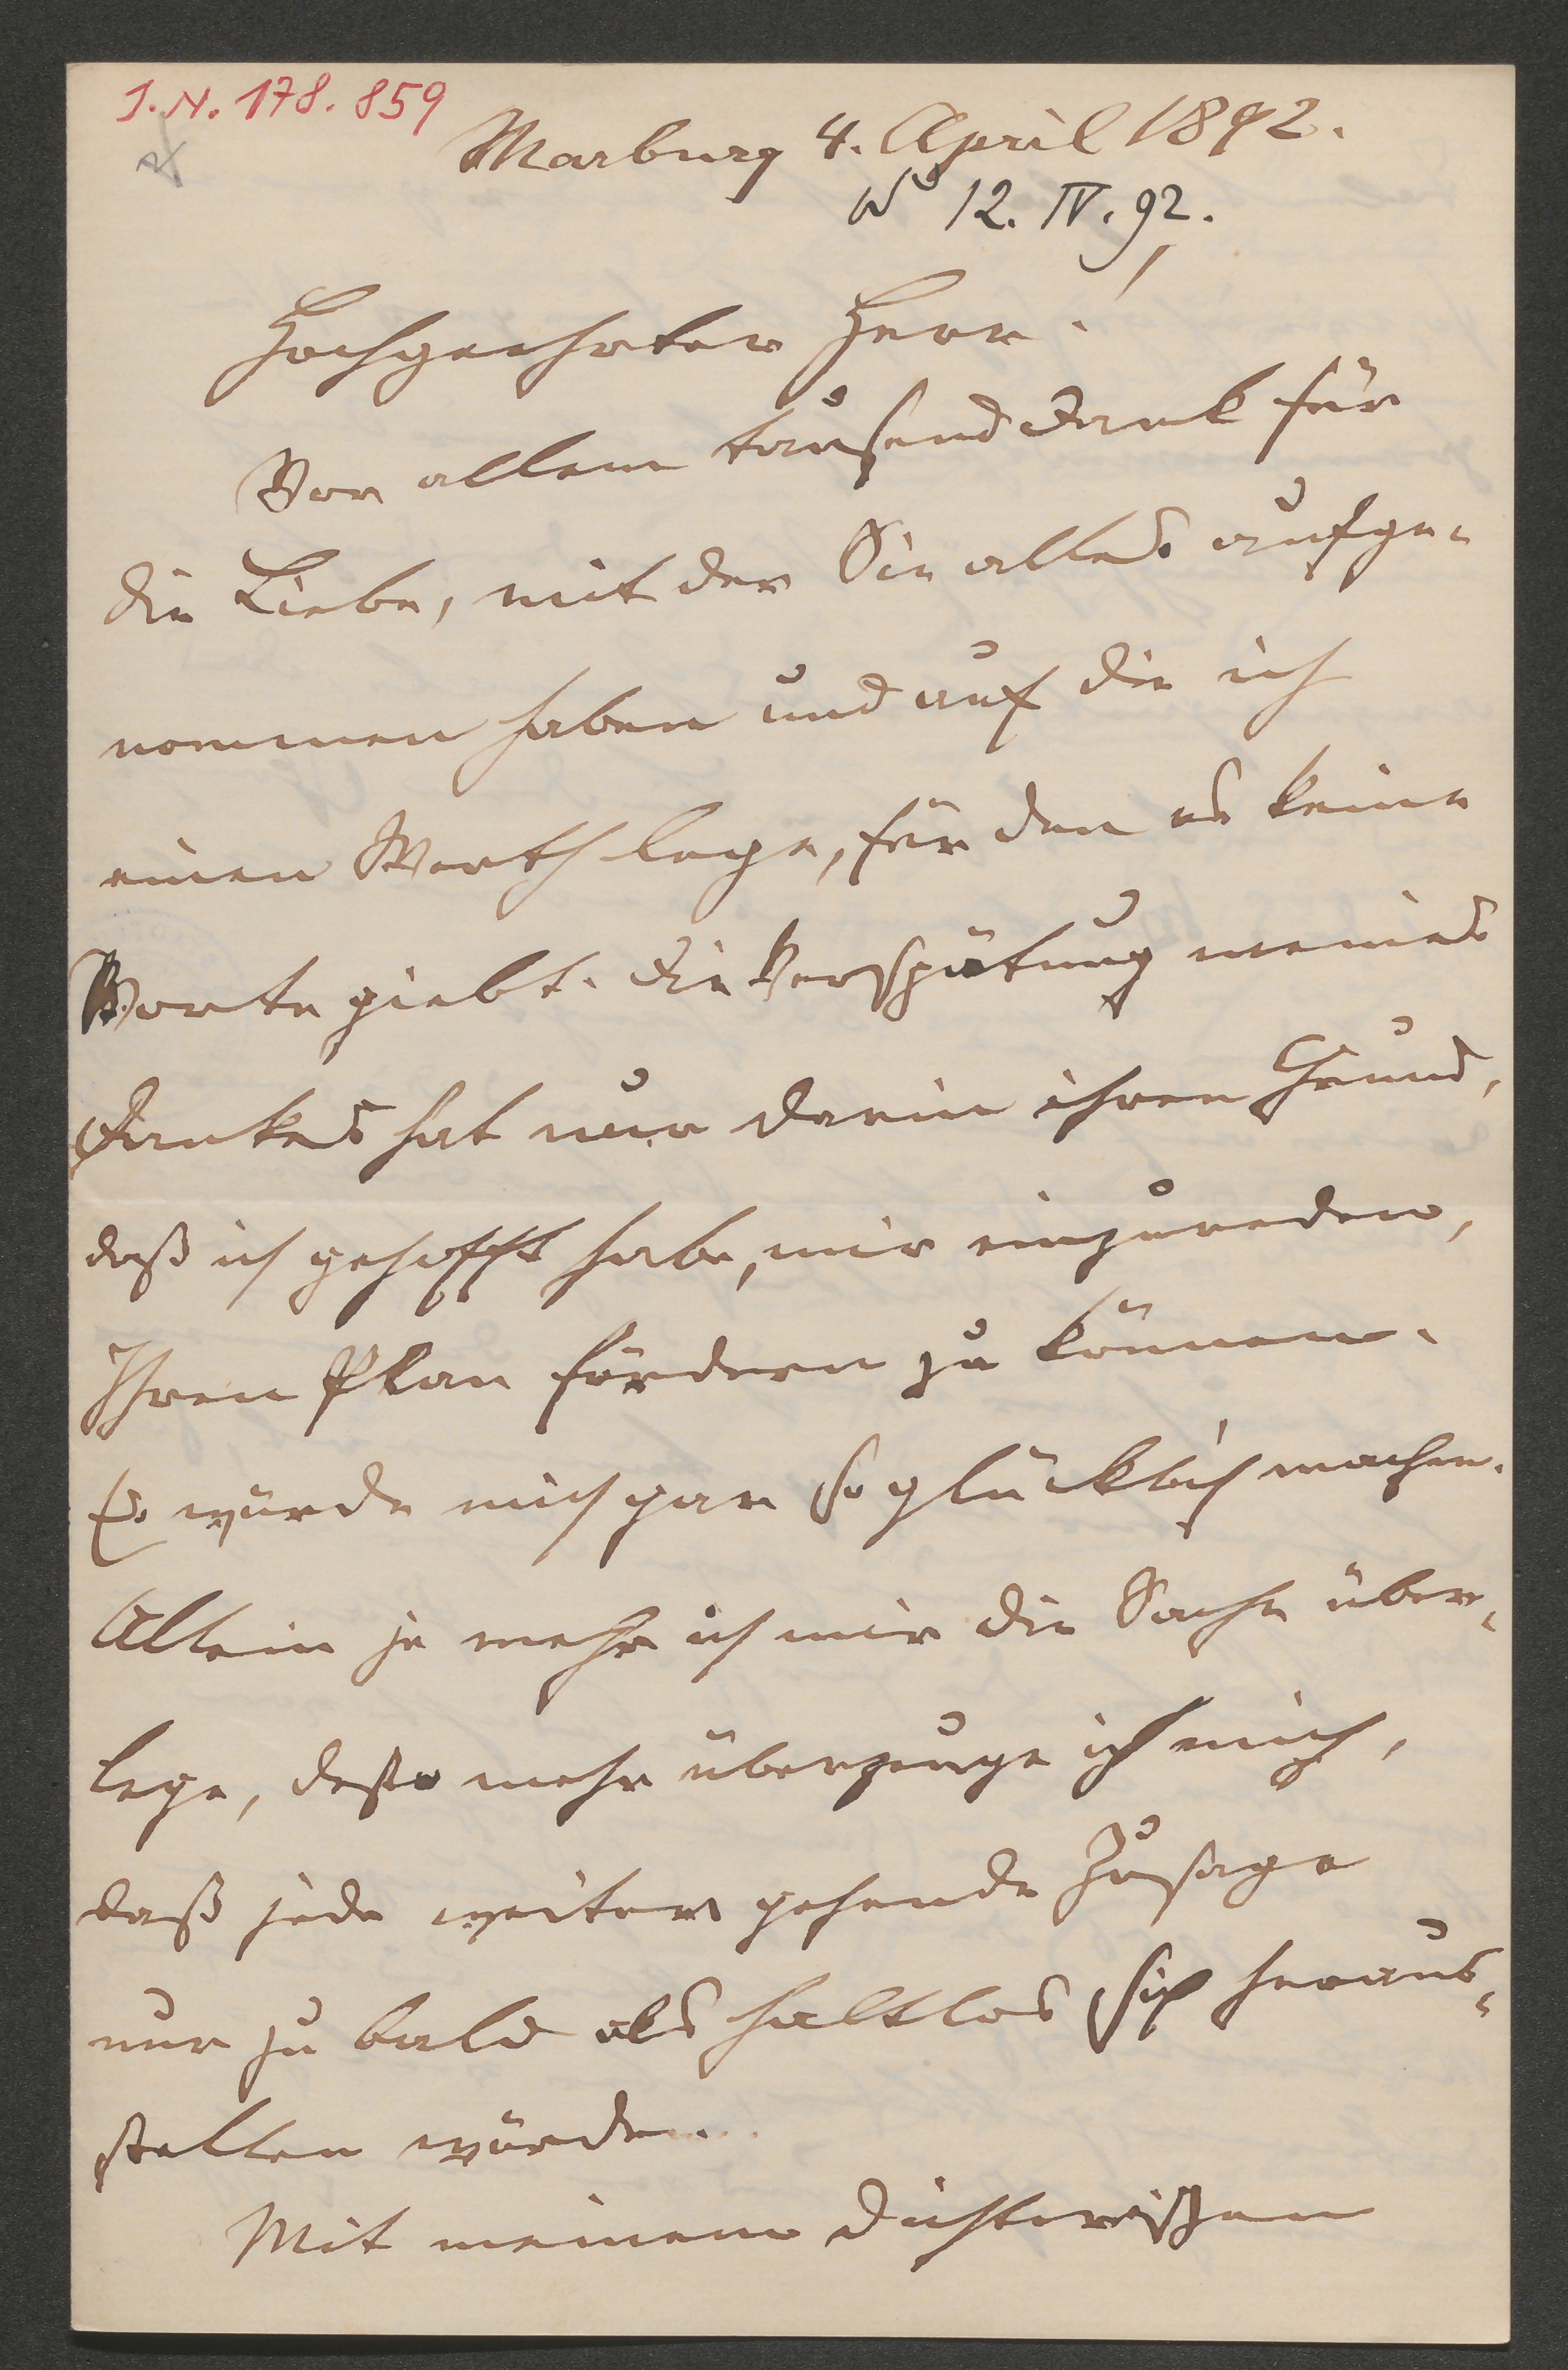 J. N. 178. 859
Marburg 4. April 1892.
12. IV. 92.
Hochgeehrter Herr!
Vor allem tausend Dank für
die Liebe, mit der Sie alles aufge-
nommen haben und auf die ich
einen Werth lege, für den es keine
Worte giebt. Die Verspätung meines
Dankes hat nur darin ihren Grund,
daß ich gehofft habe, mir einzureden,
Ihren Plan fördern zu können.
Es würde mich gar so glücklich machen.
Allein je mehr ich mir die Sache über-
lege, desto mehr überzeuge ich mich,
daß jede weiter gehende Zusage
nur zu bald als haltlos sich heraus-
stellen würde.
Mit meinem dichterischen